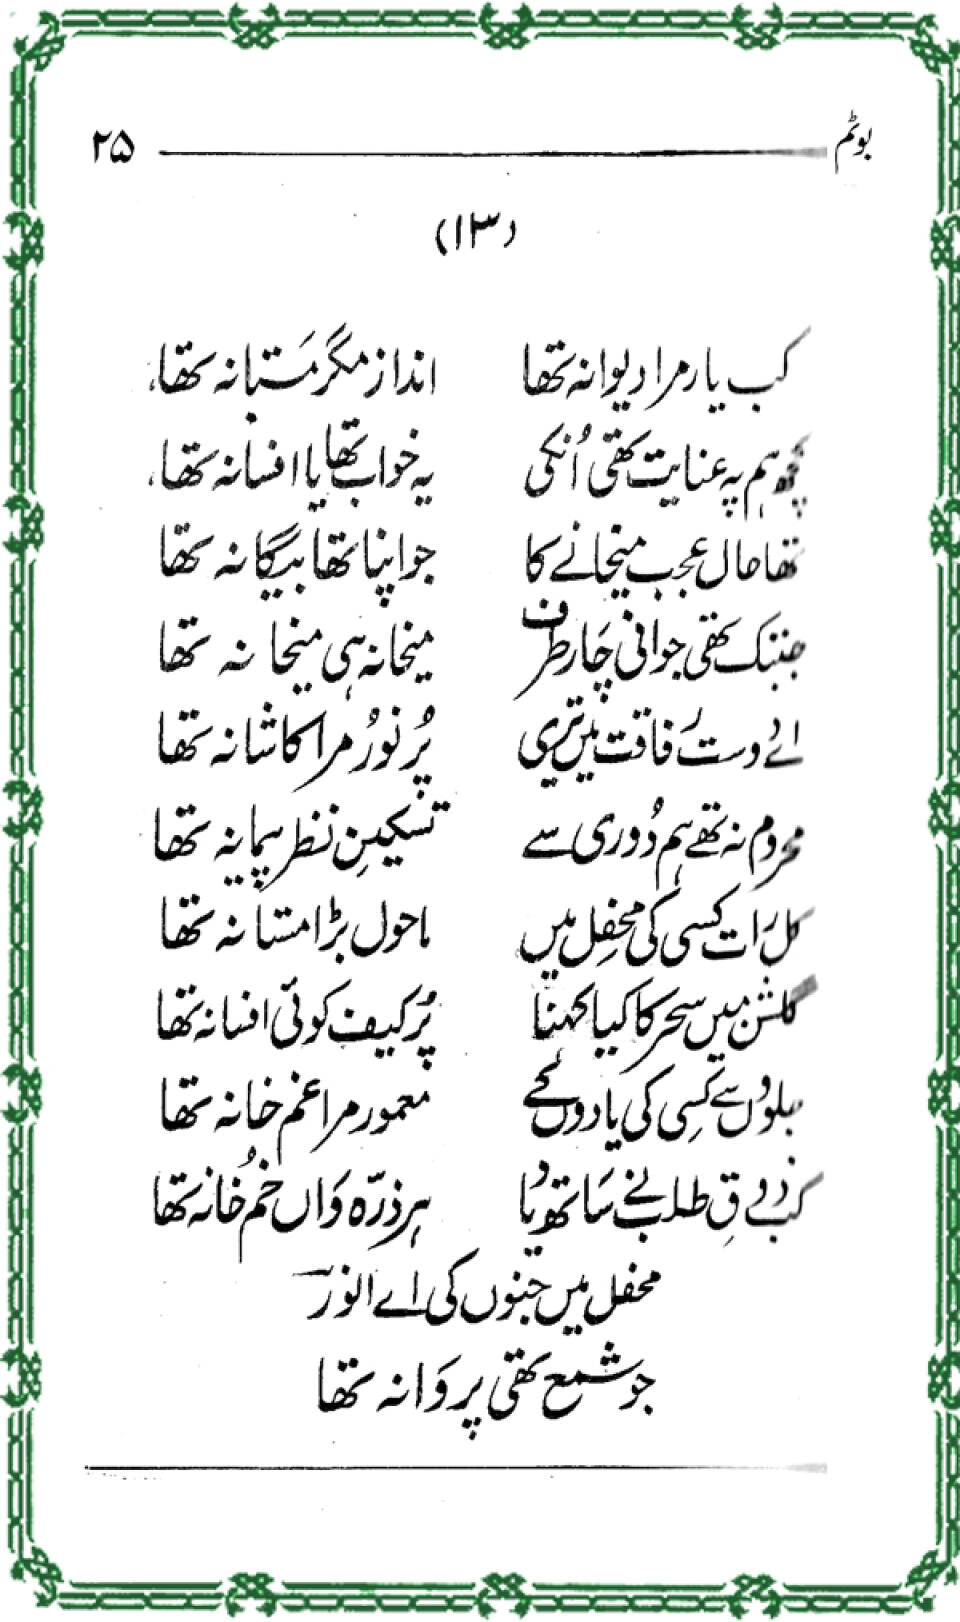 بوٹم ۲۵
(۱۳)
کب یار مرا دیوانہ تھا انداز مگر مستانہ تھا
کچھ ہم پہ عنایت تھی اُنکی یہ خواب تھا یا افسانہ تھا
تھا حال عجب میخانے کا جو اپنا تھا بیگانہ تھا
جبتک تھی جوانی چار طرف میخانہ ہی میخانہ تھا
اے دوست رفاقت میں تری پُر نور مرا کاشانہ تھا
محروم نہ تھے ہم دُوری سے تسکینِ نظر پیمانہ تھا
کل رات کسی کی محفل میں ماحول بڑا مستانہ تھا
گلشن میں سحر کا کیا کہنا پُر کیف کوئی افسانہ تھا
جلووں سے کسِی کی یادوں کے معمور مرا غم خانہ تھا
کب ذوقِ طلب نے ساتھ دیا ہر ذرّہ وَاں خُم خانہ تھا
محفل میں جنوں کی اے انور
جو شمع تھی پروَانہ تھا